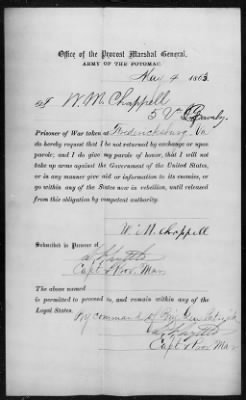 Office of the Provost Marshal General,
ARMY OF THE POTOMAC.
May 4 1863.
I W. M. Chappell
5 Va Cavalry.
Prisoner of War taken at Fredericksburg Va
do hereby request that I be not returned by exchange or upon
parole; and I do give my parole of honor, that I will not
take up arms against the Government of the United States,
or in any manner give aid or information to its enemies, or
go within any of the States now in rebellion, until released
from this obligation by competent authority.
W. M. Chappell
Subscribed in Presence of
Capt & Prov. Mar
The above named
is permitted to proceed to, and remain within any of the
Loyal States.
By command of Brig Gen
Capt & Prov Mar